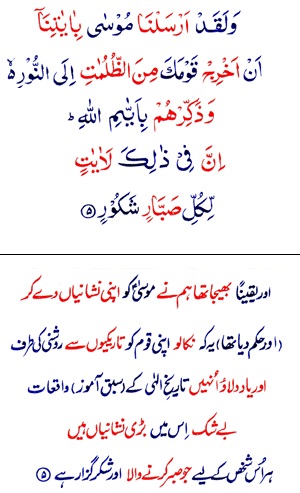 وَلَقَدْ اَرْسَلْنَا مُوْسٰى بِاٰيٰتِنَاۤ
اَنْ اَخْرِجْ قَوْمَكَ مِنَ الظُّلُمٰتِ اِلَى النُّوْرِ۬ۙ
وَذَكِّرْهُمْ بِاَيّٰىمِ اللّٰهِ ؕ
اِنَّ فِىْ ذٰلِكَ لَاٰيٰتٍ
لِّكُلِّ صَبَّارٍ شَكُوْرٍ ﴿۵﴾
اور یقیناً بھیجا تھا ہم نے موسیٰؑ کو اپنی نشانیاں دے کر
(اور حکم دیا تھا) یہ کہ نکالو اپنی قوم کو تاریکیوں سے روشنی کی طرف
اور یاد دلاؤ اُنہیں تاریخِ الٰہی کے (سبق آموز) واقعات
بے شک اِس میں بڑی نشانیاں ہیں
ہر اُس شخص کے لیے جو صبر کرنے والا اور شکر گزار ہے ﴿۵﴾